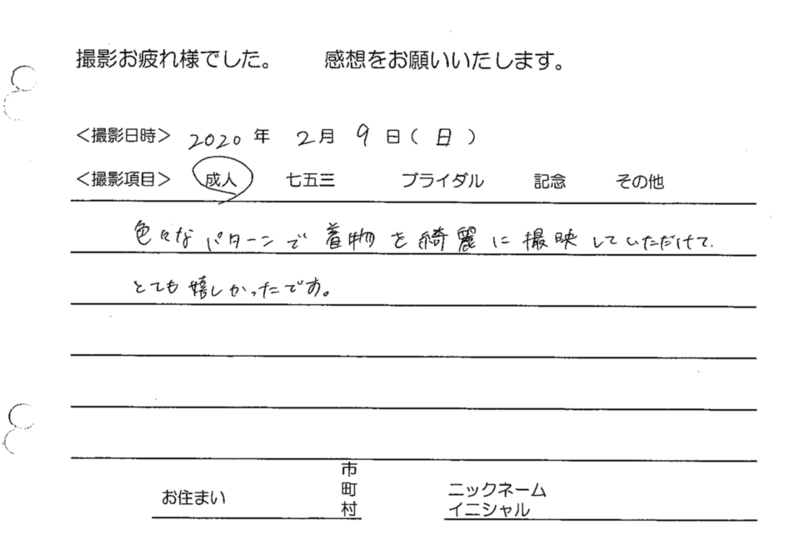 撮影お疲れ様でした。 感想をお願いいたします。
＜撮影日時＞ 2020 年 2 月 9 日 ( 日 )
＜撮影項目＞ 成人 七五三 ブライダル 記念 その他
色々なパターンで着物を綺麗に撮映していただけて、
とても嬉しかったです。
お住まい 市町村 ニックネーム イニシャル